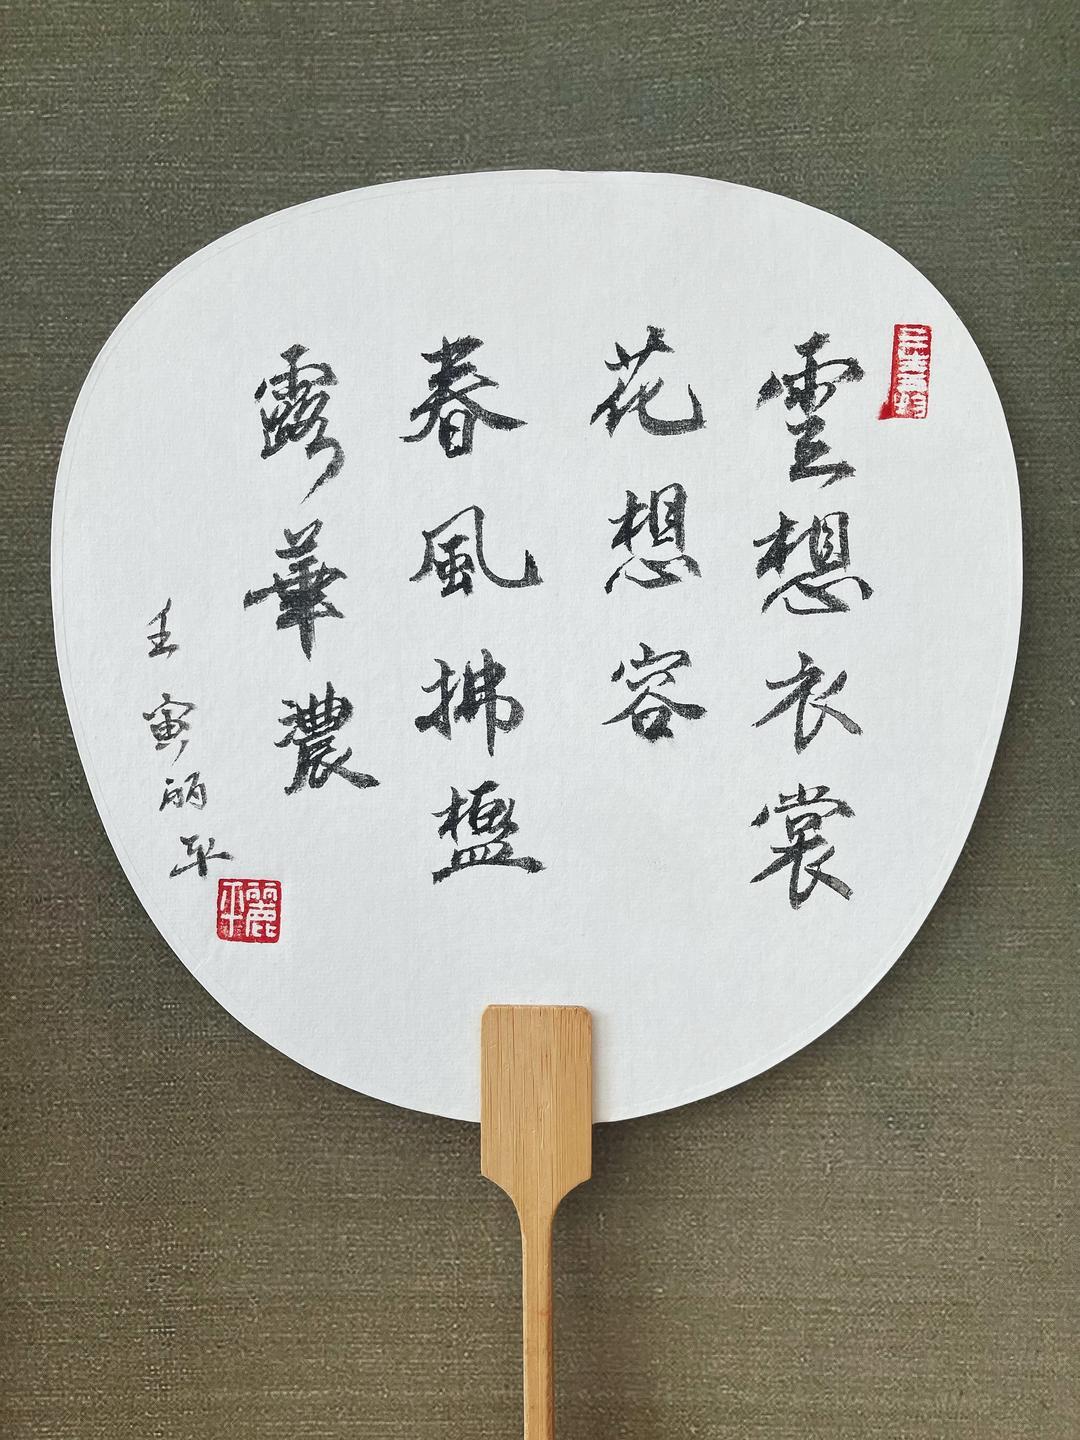 雲想衣裳
花想容
春風拂檻
露華濃
壬寅丽平
麗平